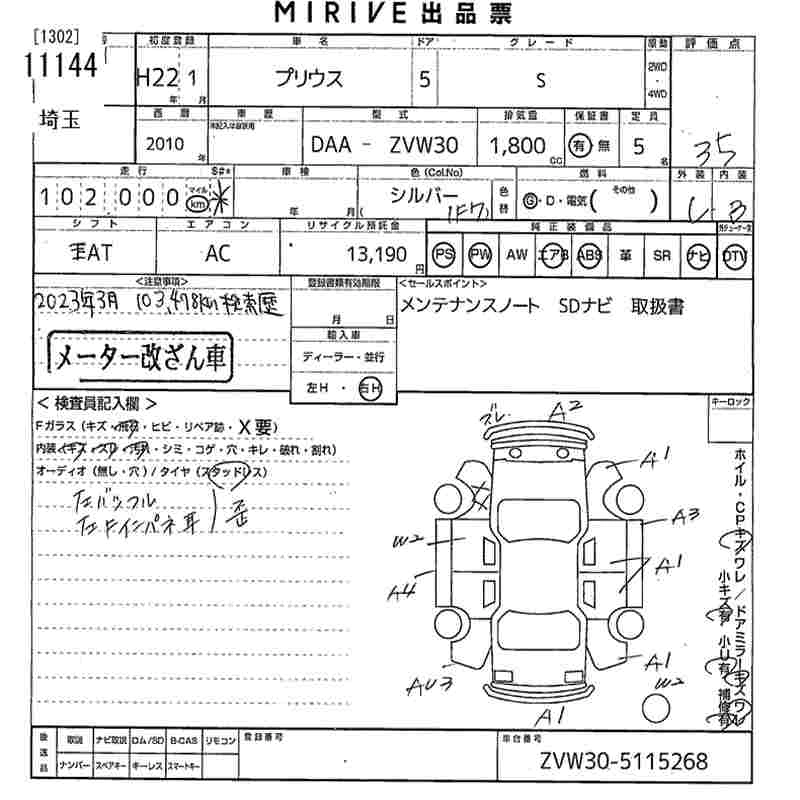 MIRIVE 出品票
[1302] 号 初度登録 車名 ドア グレード 原動 評価点
11144 H22 1 プリウス 5 S 2WD・4WD
年 月
埼玉 西暦 車歴 型式 排気量 保証書 定員
2010 未記入は自家用 DAA - ZVW30 1,800 有 無 5 3.5
年 CC 名
走行 S#* 車検 色 (Col.No) 燃料 外装 内装
102000 マイル km * シルバー 色替 G・D・電気( その他 ) B
年 月 (F7)
シフト エアコン リサイクル預託金 純正装備品
AT AC 13,190円 PS PW AW エアB ABS 革 SR ナビ DTV
<注意事項> 登録書類有効期限 <セールスポイント>
2023年3月 103,478km検索歴 メンテナンスノート SDナビ 取扱書
月 日
輸入車
メーター改ざん車 ディーラー・並行
左H ・ 右H
< 検査員記入欄 > キーロック
Fガラス (キズ・飛石・ヒビ・リペア跡・X要)
内装 (キズ・スリ・汚れ・シミ・コゲ・穴・キレ・破れ・割れ)
オーディオ (無し・穴) / タイヤ (スタッドレス)
左バッフル
左ドインパネ耳 歪
ズレ A2
A1
A3
W2
A1
A4
A1
AU3 W2
A1
ホイル・CPキズワレ / ドアミラーキズワレ
小キズ有 小U有 補修有
後送品 取説 ナビ取説 ロム/SD B-CAS リモコン 登録番号 車台番号
ナンバー スペアキー キーレス スマートキー ZVW30-5115268